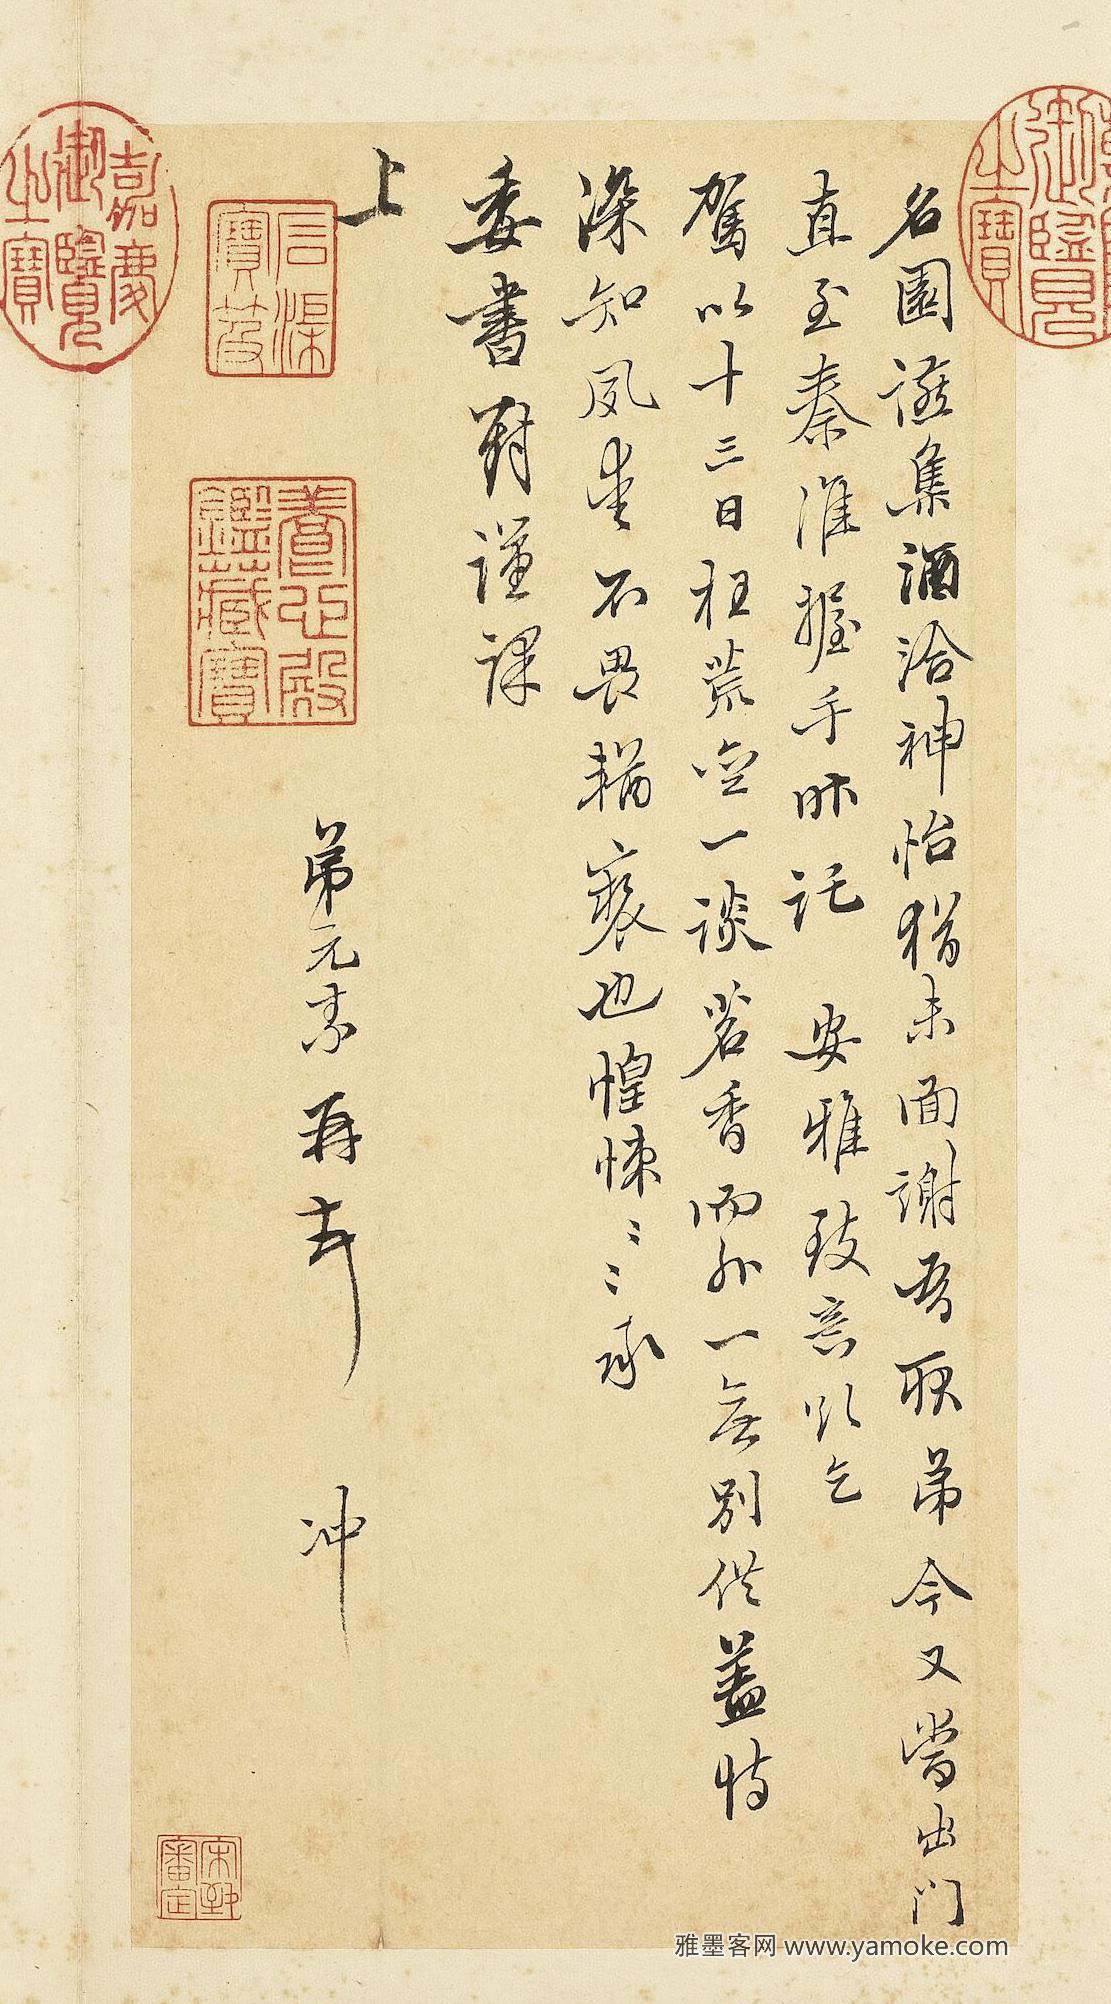 名園讌集酒洽神怡猶未面謝吾耿弟今又當出門
直至秦淮握手昧託 安雅致意次乞
駕以十三日枉荒園一談茗香而外一無別供蓋恃
深知夙愛不畏輶褻也惶悚〻〻承
委書對謹課
上
弟元素再
冲
嘉慶御覽之寶
御覽之寶
石渠寶笈
養心殿鑑藏寶
審定
雅墨客网 www.yamoke.com